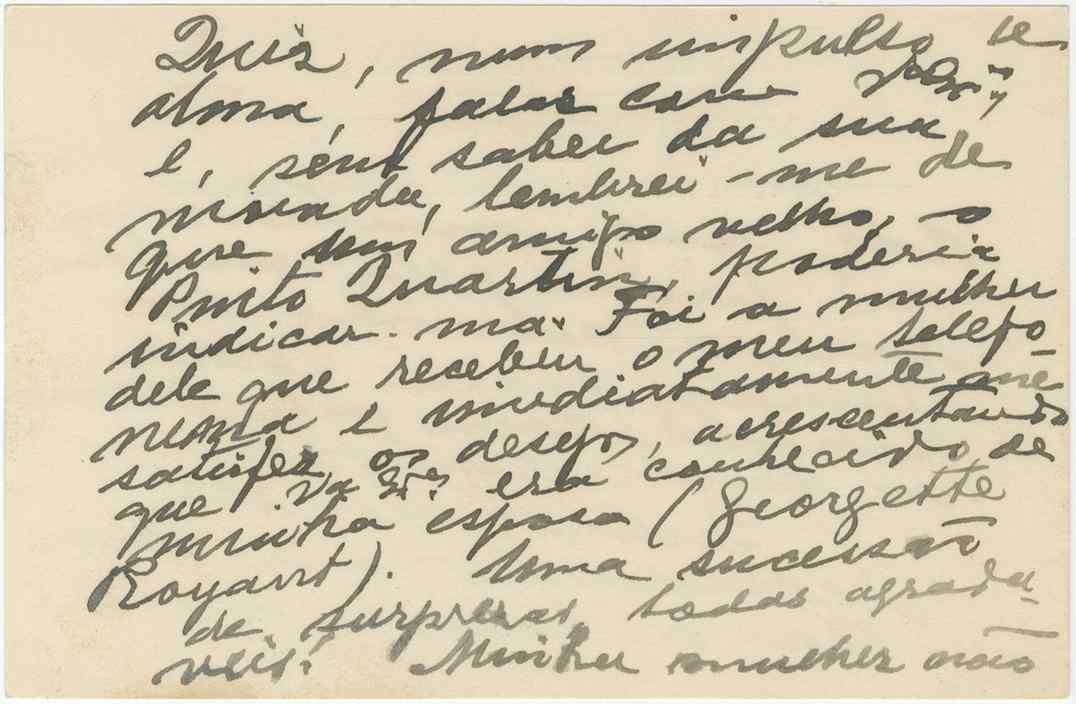 Quiz, num impulso de
alma, falar com V. Ex.ª,
e, sem saber da sua
morada, lembrei-me de
que um amigo velho, o
Pinto Quartin, poderia
indicar-ma. Foi a mulher
dele que recebeu o meu telefo
nema e imediatamente me
satisfez os desejos, acrescentando
que Va Ex.ª era conhecido de
minha esposa (Georgette
Royant). Uma sucessão
de surpresas, todas agradá-
veis! Minha mulher não